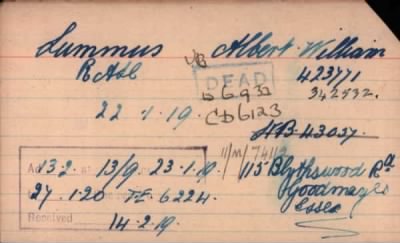 Lummus Albert William
R A&L 423771
DEAD 342932.
22.1.19. CD6123
HB 43037.
11/M/7411
13.2. 13/9. 23.1.19. 115 Blythswood Rd
27.1.20 6224. Goodmayes
Received 14.2.19. Essex